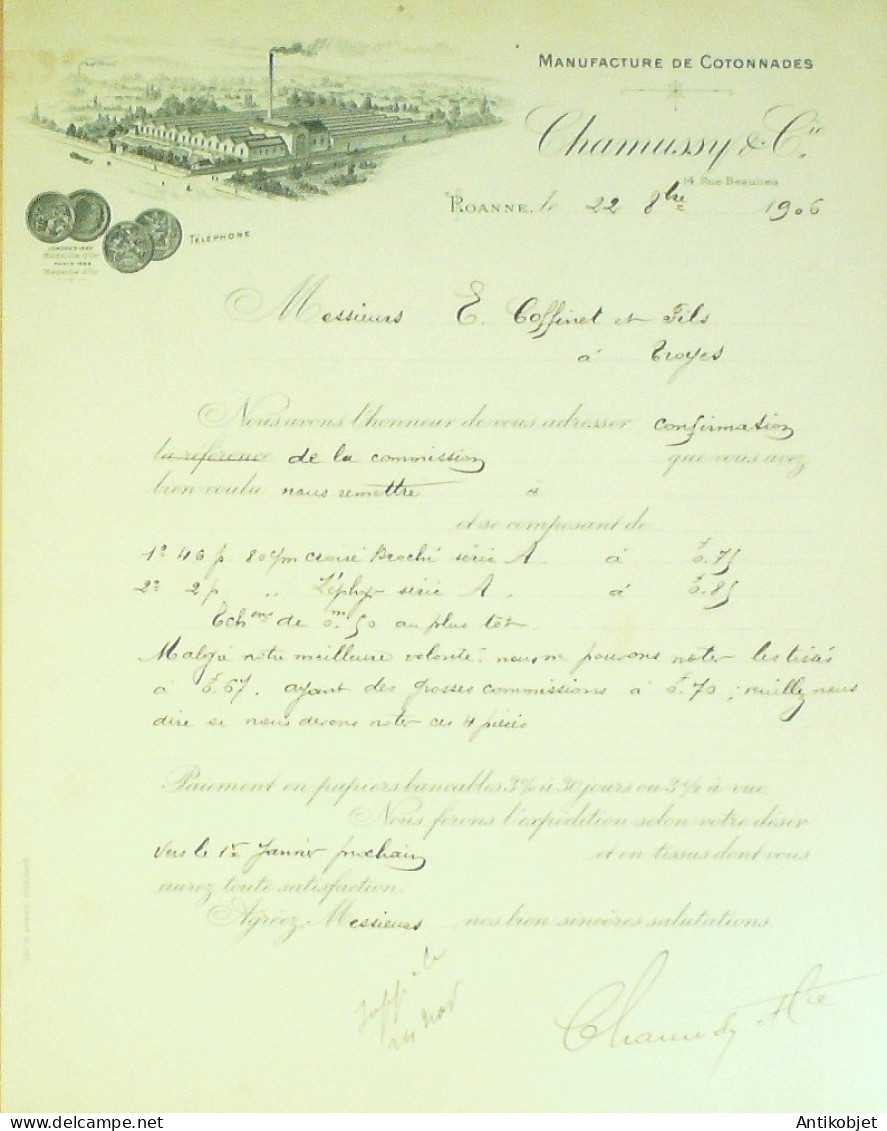 MANUFACTURE DE COTONNADES
Chamussy & Cie
14, Rue Beaulieu
ROANNE, le 22 8bre 1906
TÉLÉPHONE
LONDRES 1862
Médaille d'Or
Médaille d'Or
Messieurs E. Coffinet et Fils
à Troyes
Nous avons l'honneur de vous adresser confirmation
la référence de la commission que vous avez
bien voulu nous remettre à
et se composant de
1° 46 p. 80c/m croisé Broché série A. à f 0.75
2° 2 p. " Zéphyr série A. à f 0.85
Echons de 0m.50 au plus tôt
Malgré notre meilleure volonté nous ne pouvons noter les tissés
à f 0.67. ayant des grosses commissions à f 0.70 ; veuillez nous
dire si nous devons noter ces 4 pièces
Paiement en papiers bancables 3% à 30 jours ou 3 1/2 à vue
Nous ferons l'expédition selon votre désir
vers le 1er Janvier prochain et en tissus dont vous
aurez toute satisfaction.
Agréez, Messieurs, nos bien sincères salutations
24 nov
Chamussy & Cie
Antikobjet